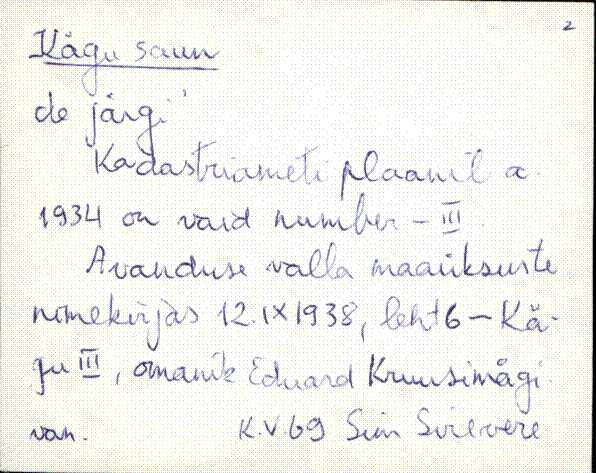 2
Kägu saun
de järgi'
Kadastriameti plaanil a.
1934 on vaid number - III.
Avanduse valla maaüksuste
nimekirjas 12.IX 1938, leht 6 - Kä-
gu III, omanik Eduard Kruusimägi.
van. K.V.69 Siim